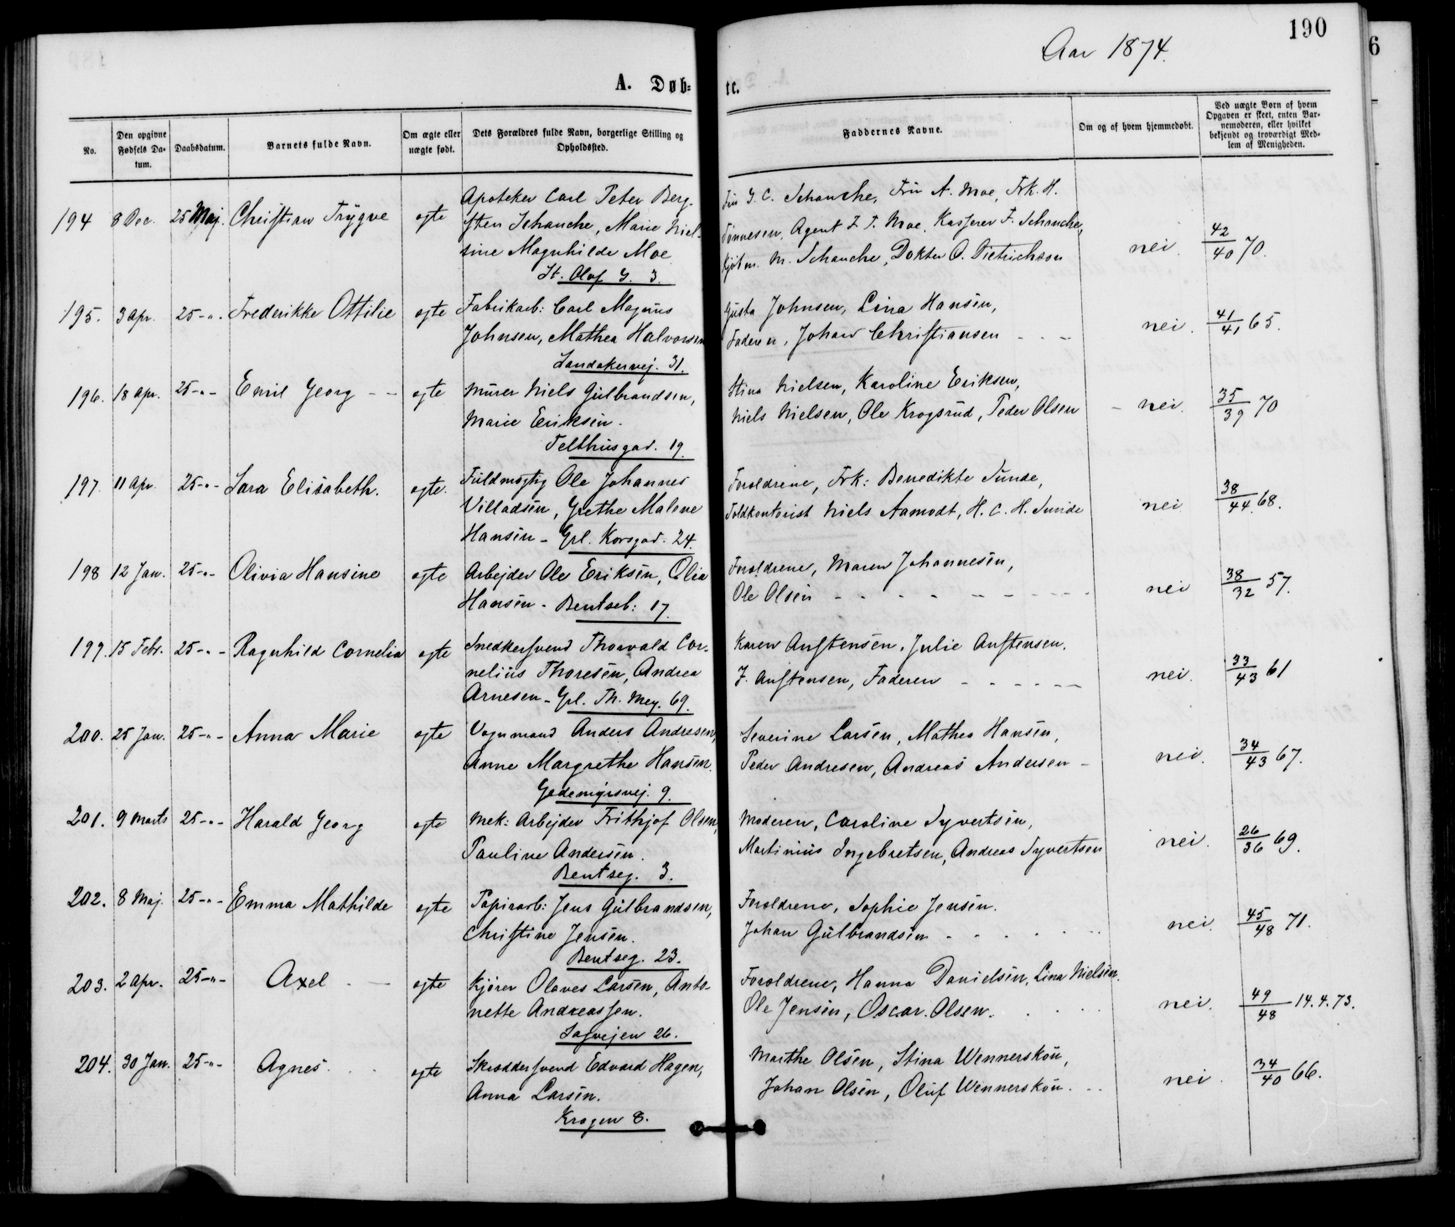 190
Aar 1874.
A. Døb-
te.
No.
Den opgivne Fødsels Da-tum.
Daabsdatum.
Barnets fulde Navn.
Om ægte eller uægte født.
Dets Forældres fulde Navn, borgerlige Stilling og Opholdssted.
Faddernes Navne.
Om og af hvem hjemmedøbt.
Ved uægte Børn af hvem Opgaven er skeet, enten Bar-nemoderen, eller hvilket bekjendt og troværdigt Med-lem af Menigheden.
194 8 Dec. 25 Maj. Christian Trygve ægte Apoteker Carl Peter Berg-
sten Schanche, Marie Niel-
sine Magnhilde Moe
St. Olaf G. 3.
Fru J. C. Schanche, Fru A. Moe, Frk. H.
Tønnesen, Agent I. T. Moe, Kasserer F. Schanche,
Kjøbm. M. Schanche, Dokter O. Dietrichson nei 42/40 70.
195. 3 Apr. 25-"- Frederikke Ottilie ægte Fabrikarb: Carl Magnus
Johnsen, Mathea Halvorsen
Sandakervej. 31.
Gusta Johnsen, Lina Hansen,
Faderen, Johan Christiansen - - - nei. 41/41 65.
196. 18 Apr. 25-"- Emil Georg - - ægte Murer Niels Gulbrandsen,
Marie Eriksen.
Telthusgad. 19.
Stina Nielsen, Karoline Eriksen,
Niels Nielsen, Ole Krogsrud, Peder Olsen - nei. 35/39 70
197. 11 Apr. 25-"- Sara Elisabeth. ægte. Fuldmægtig Ole Johannes
Villadsen, Grethe Malene
Hansen - Grl. Korsgad. 24.
Forældrene, Frk: Benedikte Sunde,
Toldkontorist Niels Aamodt, H. C. H. Sunde nei 38/44 68.
198 12 Jan. 25-"- Olivia Hansine ægte Arbejder Ole Eriksen, Olia
Hansen - Bentseb: 17.
Forældrene, Maren Johannesen,
Ole Olsen - - - - - - - nei 38/32 57.
199. 15 Febr. 25-"- Ragnhild Cornelia ægte Snedkersvend Thorvald Cor-
nelius Thoresen, Andrea
Arnesen - Grl. Th. Mey. 69.
Karen Austensen, Julie Austensen.
J. Austensen, Faderen - - - - - nei. 33/43 61
200. 25 Jan. 25-"- Anna Marie ægte Vognmand Anders Andresen,
Anne Margrethe Hansen.
Gedemyrsvej. 9.
Severine Larsen, Mathea Hansen,
Peder Andresen, Andreas Andersen - nei. 34/43 67.
201. 9 Marts 25-"- Harald Georg ægte Mek: Arbejder Frithjof Olsen,
Pauline Andersen.
Bentseg. 3.
Moderen, Caroline Syvertsen,
Martinius Ingebretsen, Andreas Syvertsen nei. 26/36 69.
202. 8 Maj. 25-"- Emma Mathilde ægte Papirarb: Jens Gulbrandsen,
Christine Jensen.
Bentseg. 23.
Forældrene, Sophie Jensen.
Johan Gulbrandsen - - - - - nei. 45/48 71.
203. 2 Apr. 25-"- Axel - - ægte Kjører Olaves Larsen, Anto-
nette Andreassen.
Sagvejen 26.
Forældrene, Hanna Danielsen, Lina Nielsen.
Ole Jensen, Oscar Olsen. nei. 49/48 14.4.73.
204. 30 Jan. 25-"- Agnes. ægte Skræddersvend Edvard Hagen,
Anna Larsen.
Krogen 8.
Marthe Olsen, Stina Wennerskou,
Johan Olsen, Oluf Wennerskou. nei. 34/40 66.